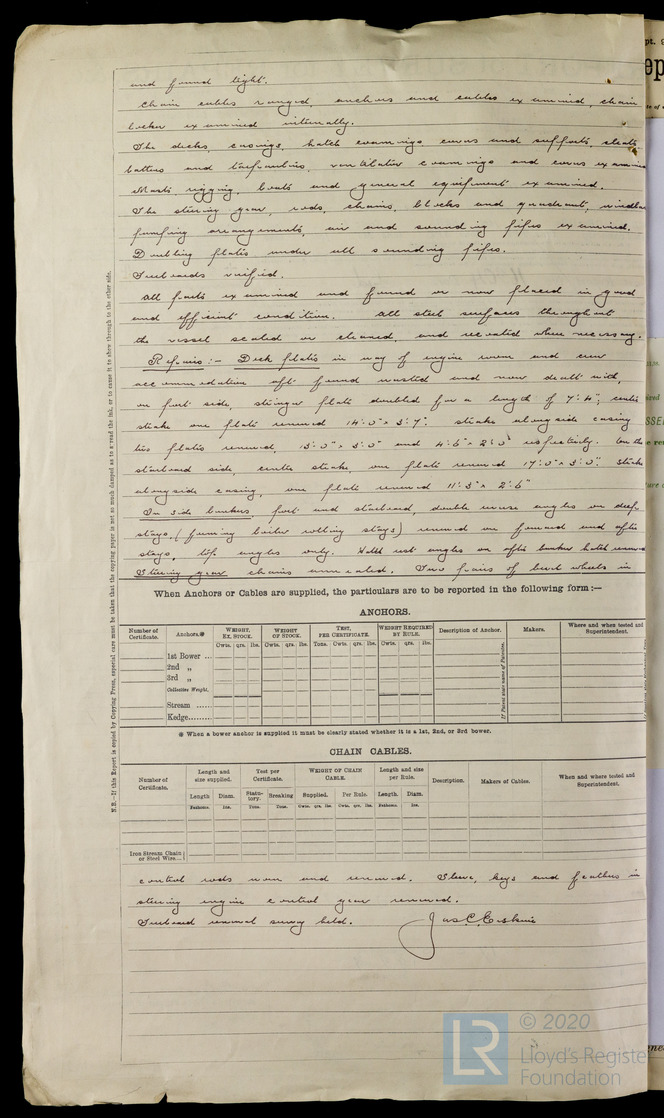 and found tight.
Chain cables ranged, anchors and cables examined, chain
locker examined internally.
The decks, casings, hatch coamings covers and supports, cleats,
battens and tarpaulins, ventilator coamings and covers examined
Masts rigging, boats and general equipment examined.
The steering gear, rods, chains, blocks and quadrant, windlass
pumping arrangements, air and sounding pipes examined.
Doubling plates under all sounding pipes.
Freeboards verified.
All parts examined and found or now placed in good
and efficient condition. All steel surfaces throughout
the vessel scaled or cleaned, and recoated where necessary.
Repairs:- Deck plates in way of engine room and crew
accommodation aft found wasted and now dealt with,
on port side, stringer plate doubled for a length of 7'.4", centre
strake one plate renewed 14'.0" x 3'.7". strake alongside casing
two plates renewed, 13'.0" x 3'.0" and 4'.6" x 2'.0" respectively. On the
starboard side, centre strake, one plate renewed 17'.0" x 3'.0". Strake
alongside casing, one plate renewed 11'.3" x 2'.6"
In side bunkers, port and starboard, double angles on deep
stays, (forming boiler rolling stays) renewed on forward and after
stays, top angles only. rest angles on after bunker hatch renewed
Steering gear chains annealed. Two pairs of bevel wheels in
When Anchors or Cables are supplied, the particulars are to be reported in the following form:—
ANCHORS.
Number of Certificate. Anchors.* WEIGHT, EX. STOCK. WEIGHT OF STOCK. TEST, PER CERTIFICATE. WEIGHT REQUIRED BY RULE. Description of Anchor. Makers. Where and when tested and Superintendent.
Cwts. qrs. lbs. Cwts. qrs. lbs. Tons. Cwts. qrs. lbs. Cwts. qrs. lbs.
1st Bower ...
2nd „
3rd „
Collective Weight.
Stream ......
Kedge........
If Patent state name of Patentee.
* When a bower anchor is supplied it must be clearly stated whether it is a 1st, 2nd, or 3rd bower.
CHAIN CABLES.
Number of Certificate. Length and size supplied. Test per Certificate. WEIGHT OF CHAIN CABLE. Length and size per Rule. Description. Makers of Cables. When and where tested and Superintendent.
Length Diam. Statutory. Breaking Supplied. Per Rule. Length. Diam.
Fathoms. Ins. Tons. Tons. Cwts. qrs. lbs. Cwts. qrs. lbs. Fathoms. Ins.
Iron Stream Chain or Steel Wire...
control rods worn and renewed. Sleeve, keys and feathers in
steering engine control gear renewed.
Freeboard renewal survey held. Jas. C. Erskine
N.B.—If this Report is copied by Copying Press, especial care must be taken that the copying paper is not so much damped as to spread the ink, or to cause it to show through to the other side.
LR © 2020
Lloyd's Registe
Foundation